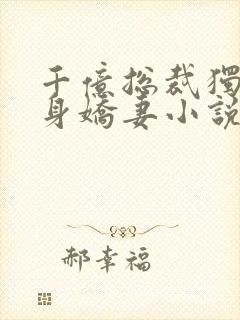 千億總裁獨
身嬌妻小說
郝幸福